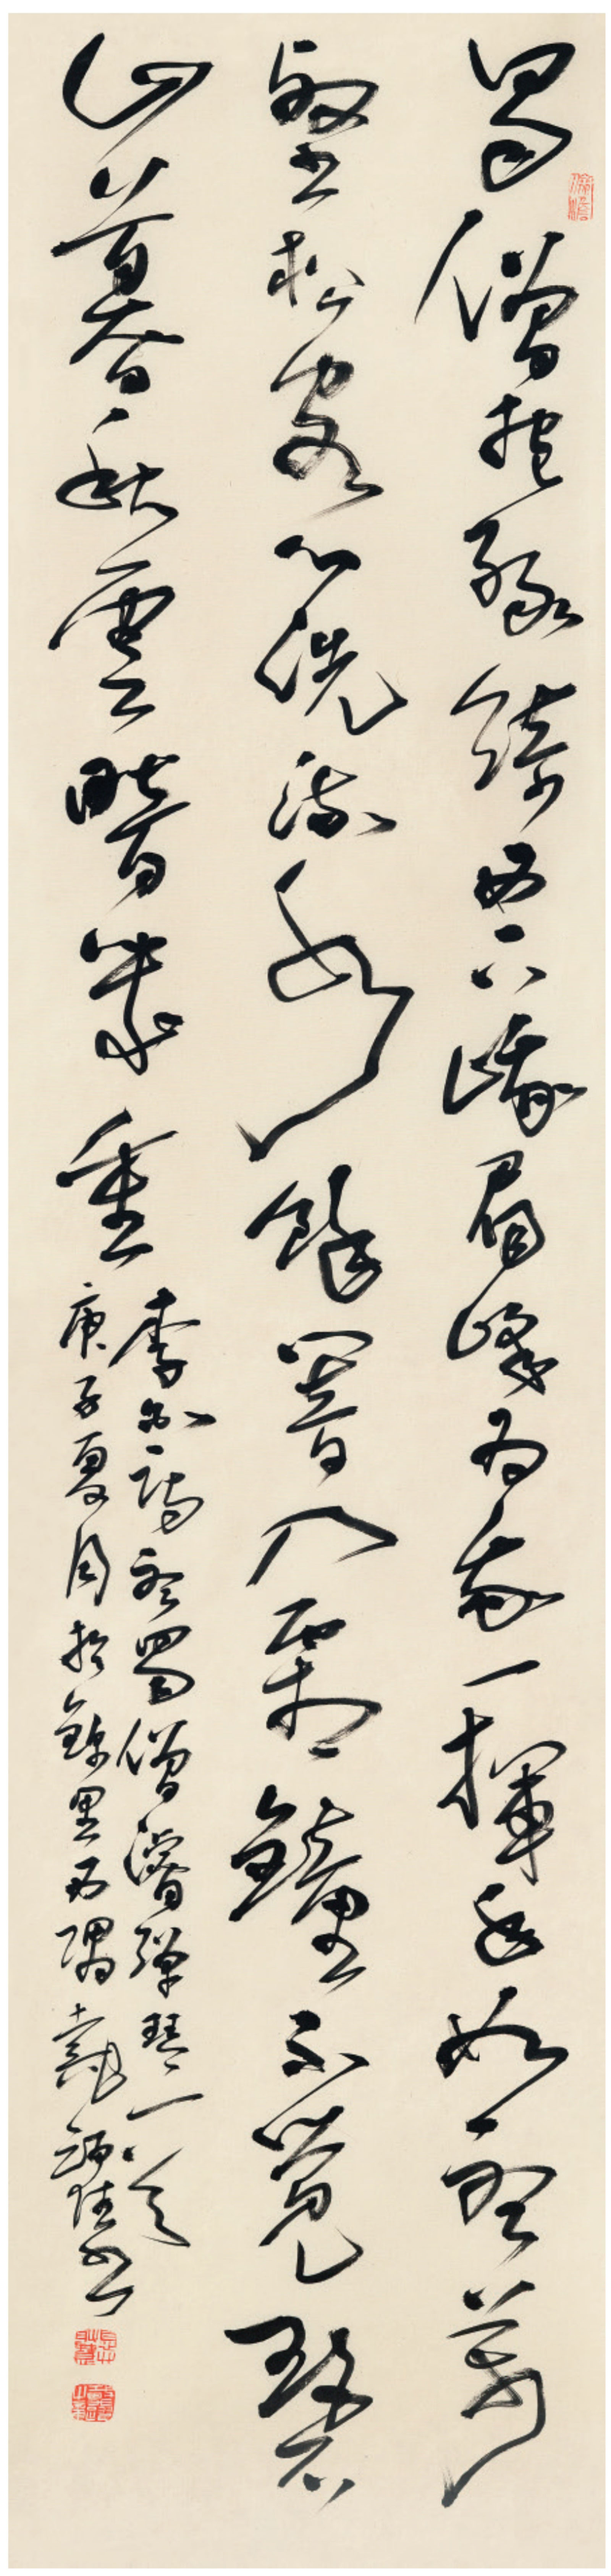 蜀僧抱綠綺西下峨眉峰為我一揮手如聽萬
壑松客心洗流水餘響入霜鐘不覺碧
山暮秋雲暗幾重
李白詩聽蜀僧濬彈琴一首
庚子夏月於錦里西隅書